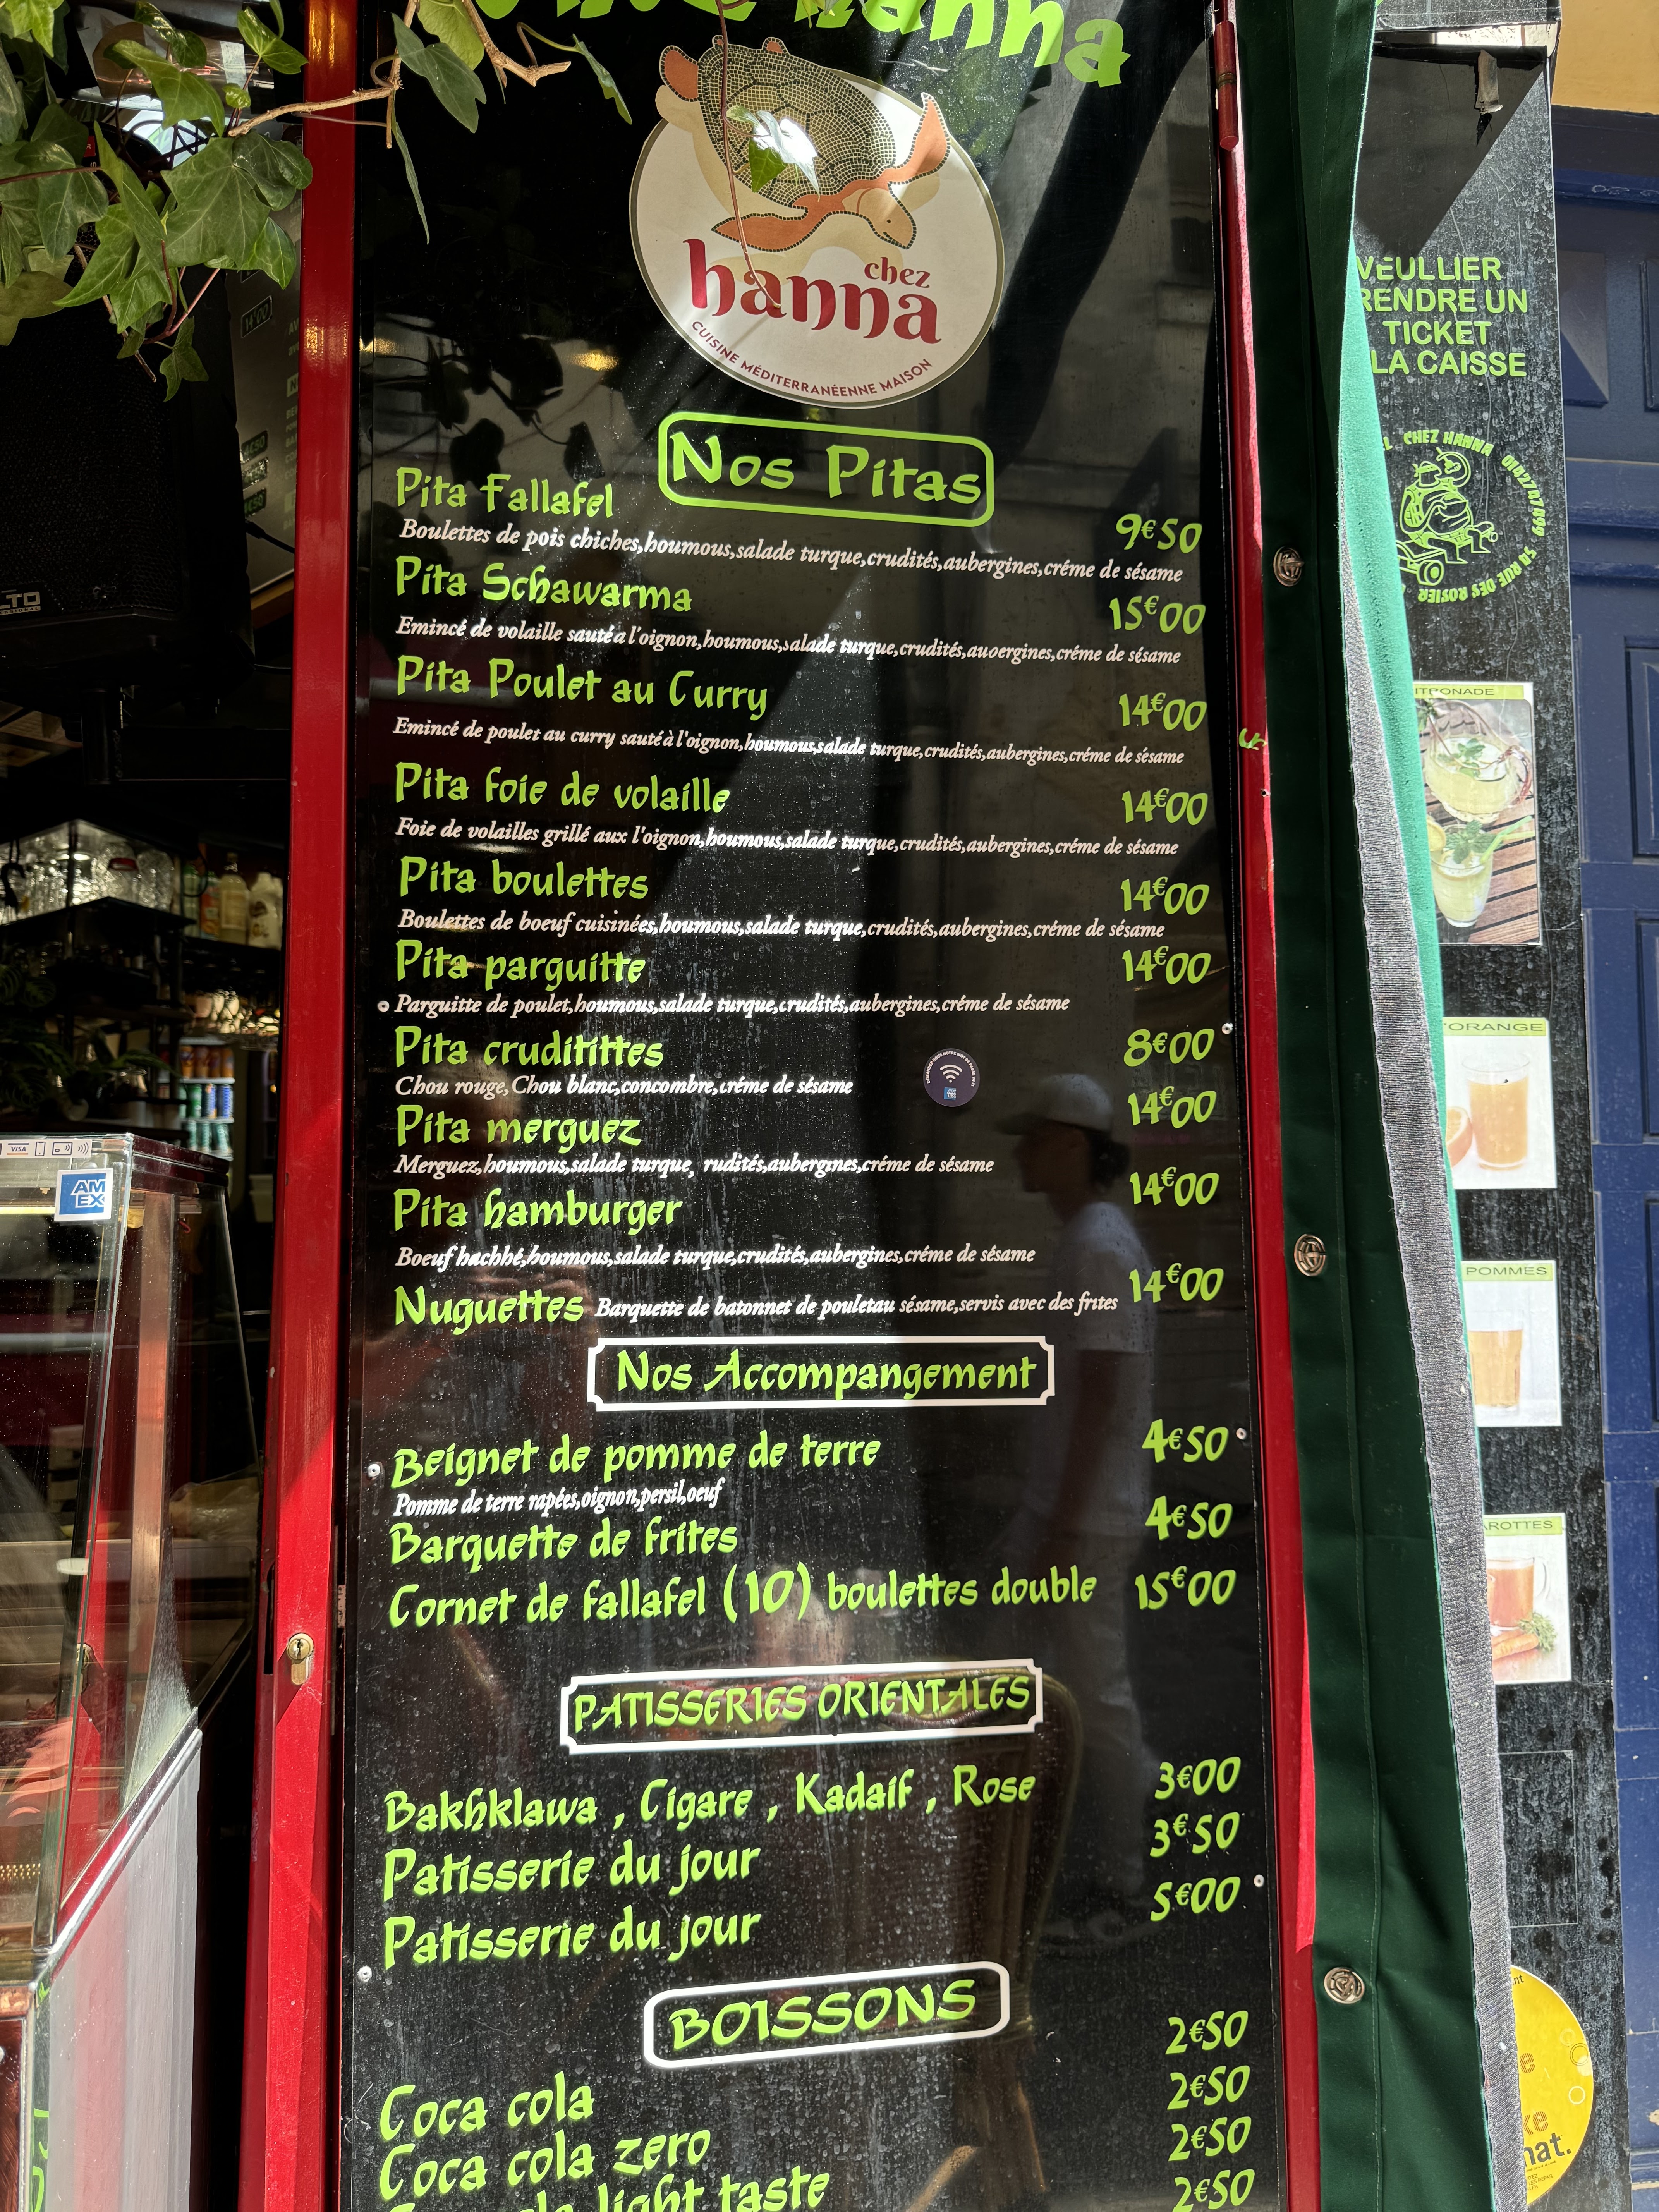 hanna
chez
hanna
CUISINE MÉDITERRANÉENNE MAISON
Nos Pitas
Pita Fallafel 9€50
Boulettes de pois chiches,houmous,salade turque,crudités,aubergines,créme de sésame
Pita Schawarma 15€00
Emincé de volaille sauté a l'oignon,houmous,salade turque,crudités,auoergines,créme de sésame
Pita Poulet au Curry 14€00
Emincé de poulet au curry sauté à l'oignon,houmous,salade turque,crudités,aubergines,créme de sésame
Pita foie de volaille 14€00
Foie de volailles grillé aux l'oignon,houmous,salade turque,crudités,aubergines,créme de sésame
Pita boulettes 14€00
Boulettes de boeuf cuisinées,houmous,salade turque,crudités,aubergines,créme de sésame
Pita parguitte 14€00
Parguitte de poulet,houmous,salade turque,crudités,aubergines,créme de sésame
Pita crudititтes 8€00
Chou rouge,Chou blanc,concombre,créme de sésame
Pita merguez 14€00
Merguez,houmous,salade turque, rudités,aubergines,créme de sésame
Pita hamburger 14€00
Boeuf hachhé,houmous,salade turque,crudités,aubergines,créme de sésame
Nuguettes Barquette de batonnet de pouletau sésame,servis avec des frites 14€00
Nos Accompangement
Beignet de pomme de terre 4€50
Pomme de terre rapées,oignon,persil,oeuf
Barquette de frites 4€50
Cornet de fallafel (10) boulettes double 15€00
PATISSERIES ORIENTALES
Bakhklawa , Cigare , Kadaif , Rose 3€00
Patisserie du jour 3€50
Patisserie du jour 5€00
BOISSONS
Coca cola 2€50
Coca cola zero 2€50
light taste 2€50
2€50
VEULLIER
RENDRE UN
TICKET
LA CAISSE
CHEZ HANNA 0142747099 54 RUE DES ROSIER
ITRONADE
ORANGE
POMMES
AROTTES
VISA
AM
EX
LTO
14€00